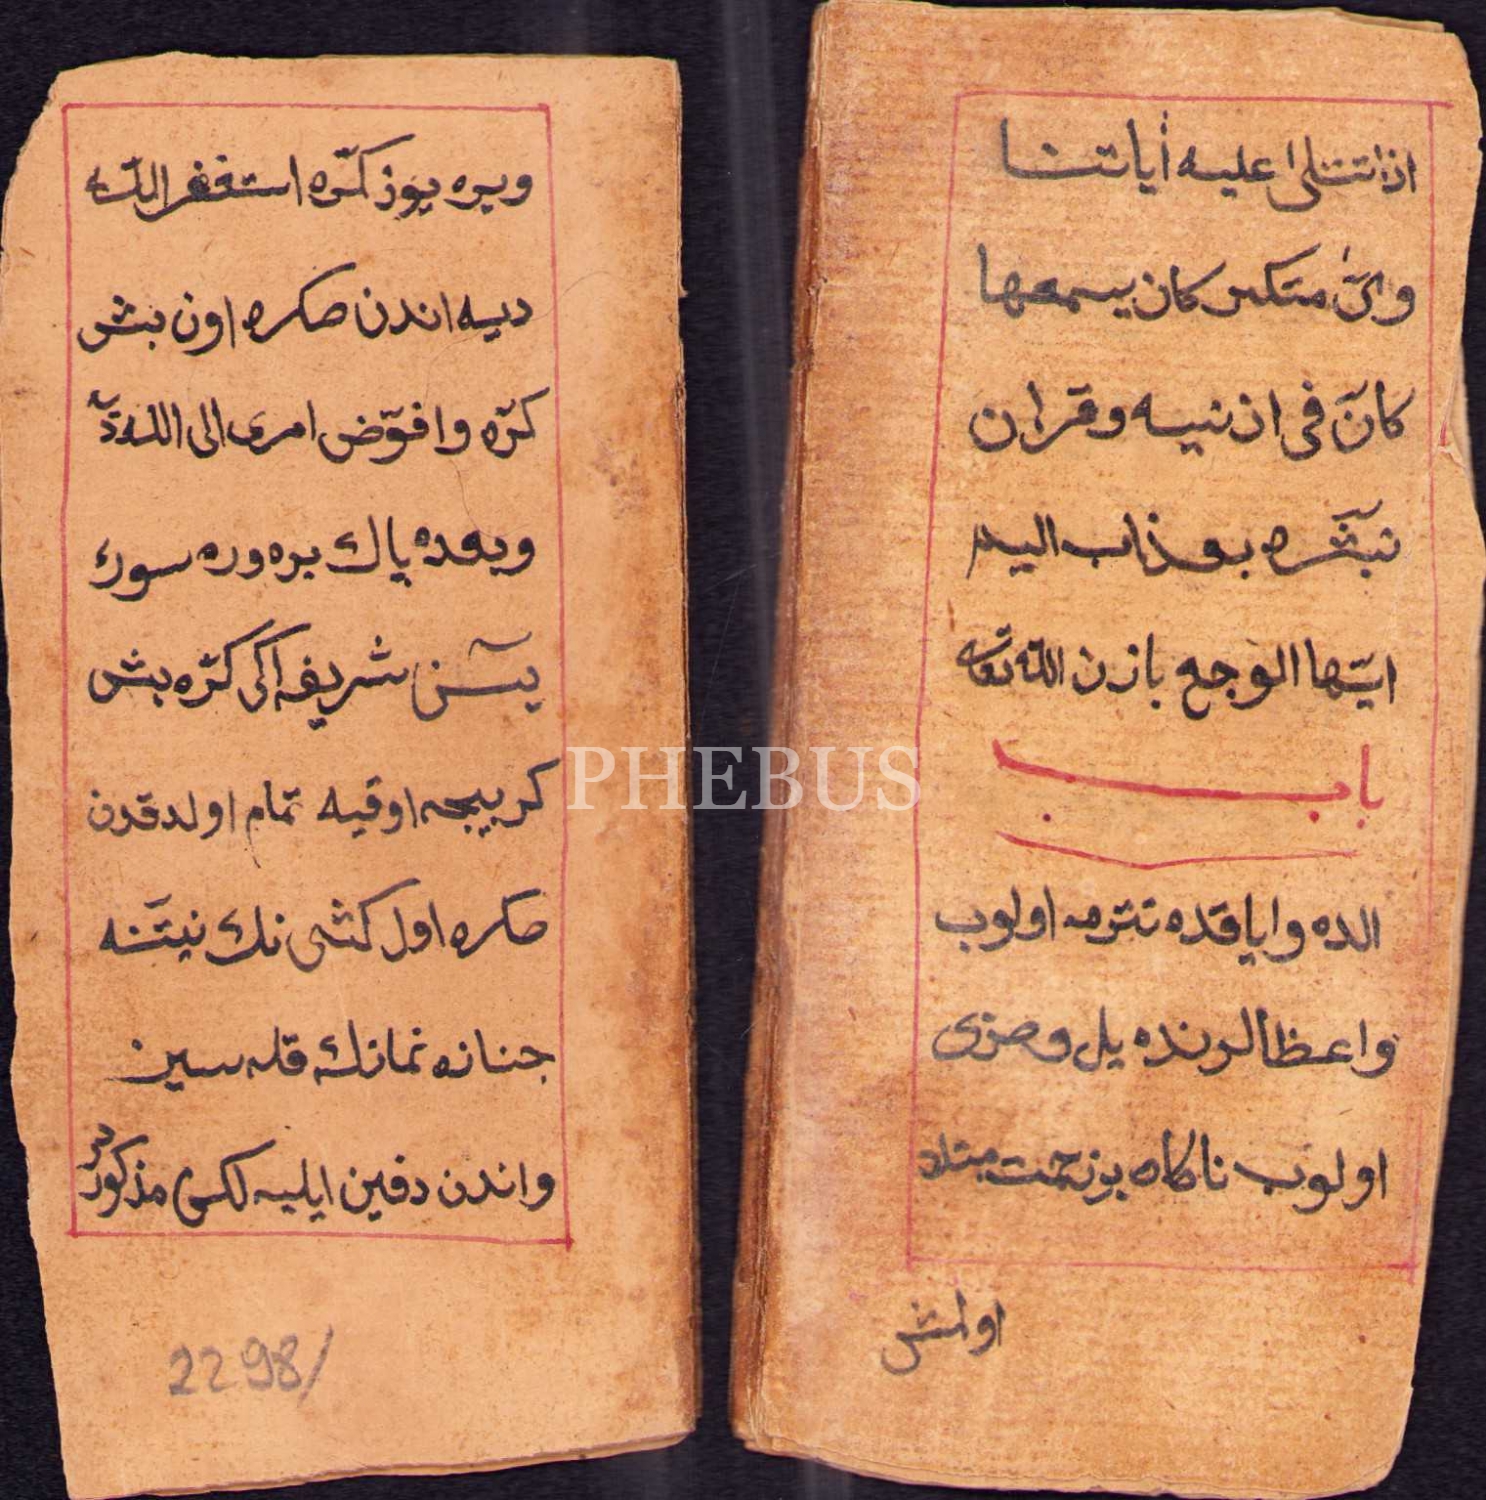 اذا تتلى عليه اٰياتنا
ولّى متكبر كان يسمعها
كانَ فى اذنيه وقران
نبشّره بعذاب اليم
ايّتها الوجع باذن اللّه تعا
باب
الده واياقده تتره اولوب
واعظالرنده يل وصزى
اولوب ناكاه بر زحمت مبتلا
اولمش
ويره يوز كرّه استغفر اللّه
ديه اندن صكره اون بش
كرّه وافوّض امرى الى اللّه
وبعده پاك يره وره سورۀ
يسٓن شريفه اكى كرّه بش
كر بيجه اوقيه تمام اولدقدن
صكره اول كشى نك نيّتنه
جنازه نمازنك قله سين
واندن دفين ايليه لكى مذكوردر
2298/
PHEBUS